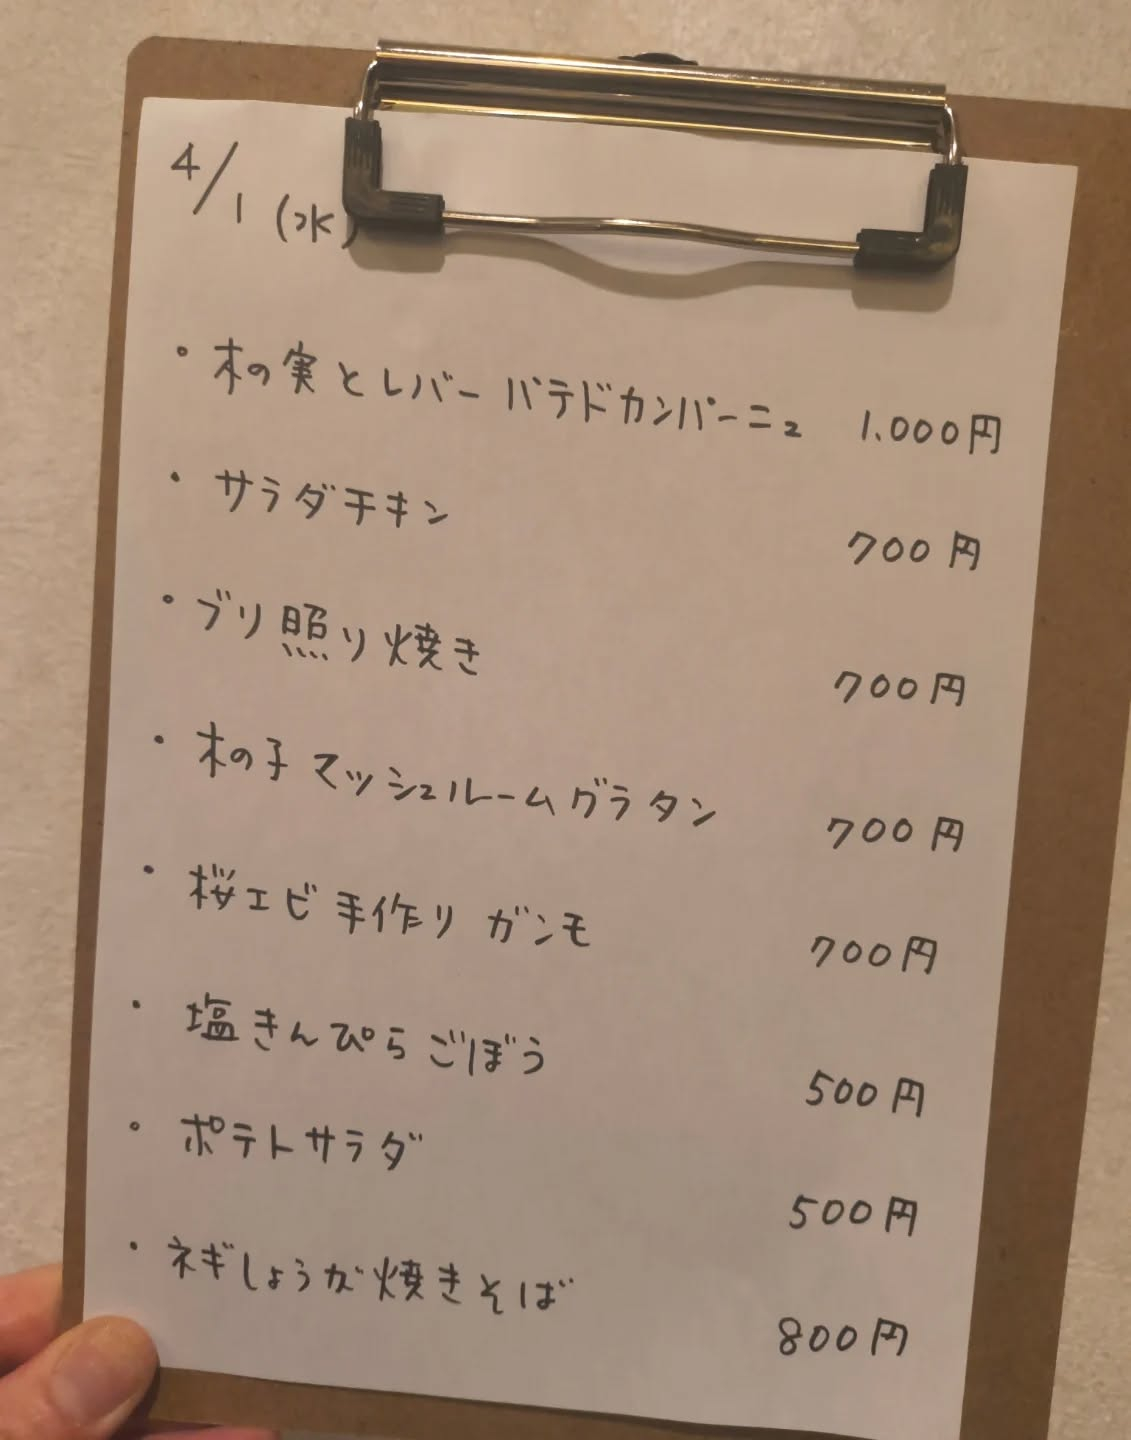 4/1 (水)
・木の実とレバー パテドカンパーニュ 1.000円
・サラダチキン 700円
・ブリ照り焼き 700円
・木の子マッシュルームグラタン 700円
・桜エビ手作りガンモ 700円
・塩きんぴらごぼう 500円
・ポテトサラダ 500円
・ネギしょうが焼きそば 800円